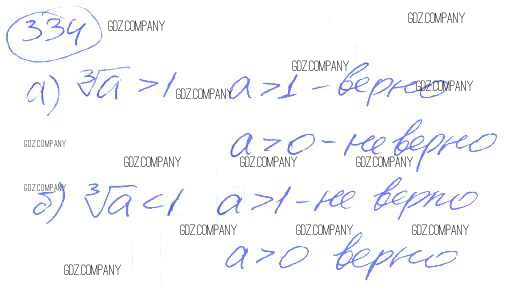 334
GDZ.COMPANY GDZ.COMPANY
GDZ.COMPANY
а) ∛a > 1 a > 1 – верно
GDZ.COMPANY GDZ.COMPANY
GDZ.COMPANY
a > 0 – не верно
GDZ.COMPANY GDZ.COMPANY GDZ.COMPANY
GDZ.COMPANY
б) ∛a < 1 a > 1 – не верно
GDZ.COMPANY GDZ.COMPANY GDZ.COMPANY
a > 0 верно
GDZ.COMPANY